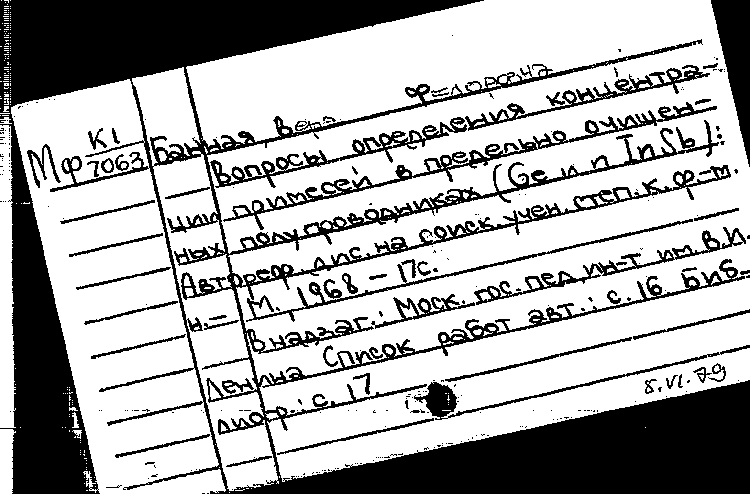 Мф К1/7063
Банная, Вера Федоровна
Вопросы определения концентра-
ции примесей в предельно очищен-
ных полупроводниках (Ge и n InSb):
Автореф. дис. на соиск. учен. степ. к. ф.-м.
н. - М., 1968. - 17с.
В надзаг.: Моск. гос. пед. ин-т им. В.И.
Ленина Список работ авт.: с. 16. Биб-
лиогр.: с. 17.
8.VI.79